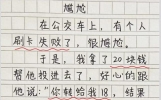 尴尬
在公交车上，有个人
刷卡失败了，很尴尬。
于是，我拿了20块钱
帮他投进去了，好心的跟
他说：“你转给我18，结果